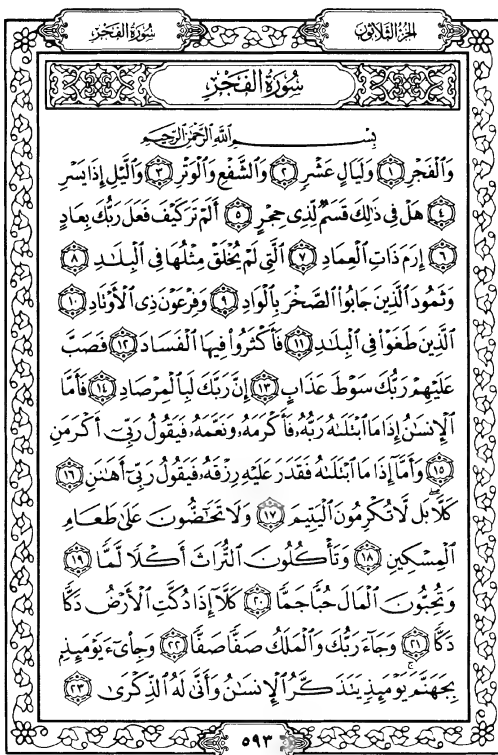 سُورَةُ الفَجْرِ
الجُزءُ الثَّلَاثُونَ
سُورَةُ الفَجْرِ
بِسْمِ ٱللَّهِ ٱلرَّحْمَٰنِ ٱلرَّحِيمِ
وَٱلْفَجْرِ ١ وَلَيَالٍ عَشْرٍ ٢ وَٱلشَّفْعِ وَٱلْوَتْرِ ٣ وَٱلَّيْلِ إِذَا يَسْرِ
٤ هَلْ فِى ذَٰلِكَ قَسَمٌ لِّذِى حِجْرٍ ٥ أَلَمْ تَرَ كَيْفَ فَعَلَ رَبُّكَ بِعَادٍ
٦ إِرَمَ ذَاتِ ٱلْعِمَادِ ٧ ٱلَّتِى لَمْ يُخْلَقْ مِثْلُهَا فِى ٱلْبِلَٰدِ ٨
وَثَمُودَ ٱلَّذِينَ جَابُوا۟ ٱلصَّخْرَ بِٱلْوَادِ ٩ وَفِرْعَوْنَ ذِى ٱلْأَوْتَادِ ١٠
ٱلَّذِينَ طَغَوْا۟ فِى ٱلْبِلَٰدِ ١١ فَأَكْثَرُوا۟ فِيهَا ٱلْفَسَادَ ١٢ فَصَبَّ
عَلَيْهِمْ رَبُّكَ سَوْطَ عَذَابٍ ١٣ إِنَّ رَبَّكَ لَبِٱلْمِرْصَادِ ١٤ فَأَمَّا
ٱلْإِنسَٰنُ إِذَا مَا ٱبْتَلَىٰهُ رَبُّهُۥ فَأَكْرَمَهُۥ وَنَعَّمَهُۥ فَيَقُولُ رَبِّىٓ أَكْرَمَنِ
١٥ وَأَمَّآ إِذَا مَا ٱبْتَلَىٰهُ فَقَدَرَ عَلَيْهِ رِزْقَهُۥ فَيَقُولُ رَبِّىٓ أَهَٰنَنِ ١٦
كَلَّا ۖ بَل لَّا تُكْرِمُونَ ٱلْيَتِيمَ ١٧ وَلَا تَحَٰٓضُّونَ عَلَىٰ طَعَامِ
ٱلْمِسْكِينِ ١٨ وَتَأْكُلُونَ ٱلتُّرَاثَ أَكْلًا لَّمًّا ١٩
وَتُحِبُّونَ ٱلْمَالَ حُبًّا جَمًّا ٢٠ كَلَّآ إِذَا دُكَّتِ ٱلْأَرْضُ دَكًّا
دَكًّا ٢١ وَجَآءَ رَبُّكَ وَٱلْمَلَكُ صَفًّا صَفًّا ٢٢ وَجِا۟ىٓءَ يَوْمَئِذٍۭ
بِجَهَنَّمَ ۚ يَوْمَئِذٍ يَتَذَكَّرُ ٱلْإِنسَٰنُ وَأَنَّىٰ لَهُ ٱلذِّكْرَىٰ ٢٣
٥٩٣